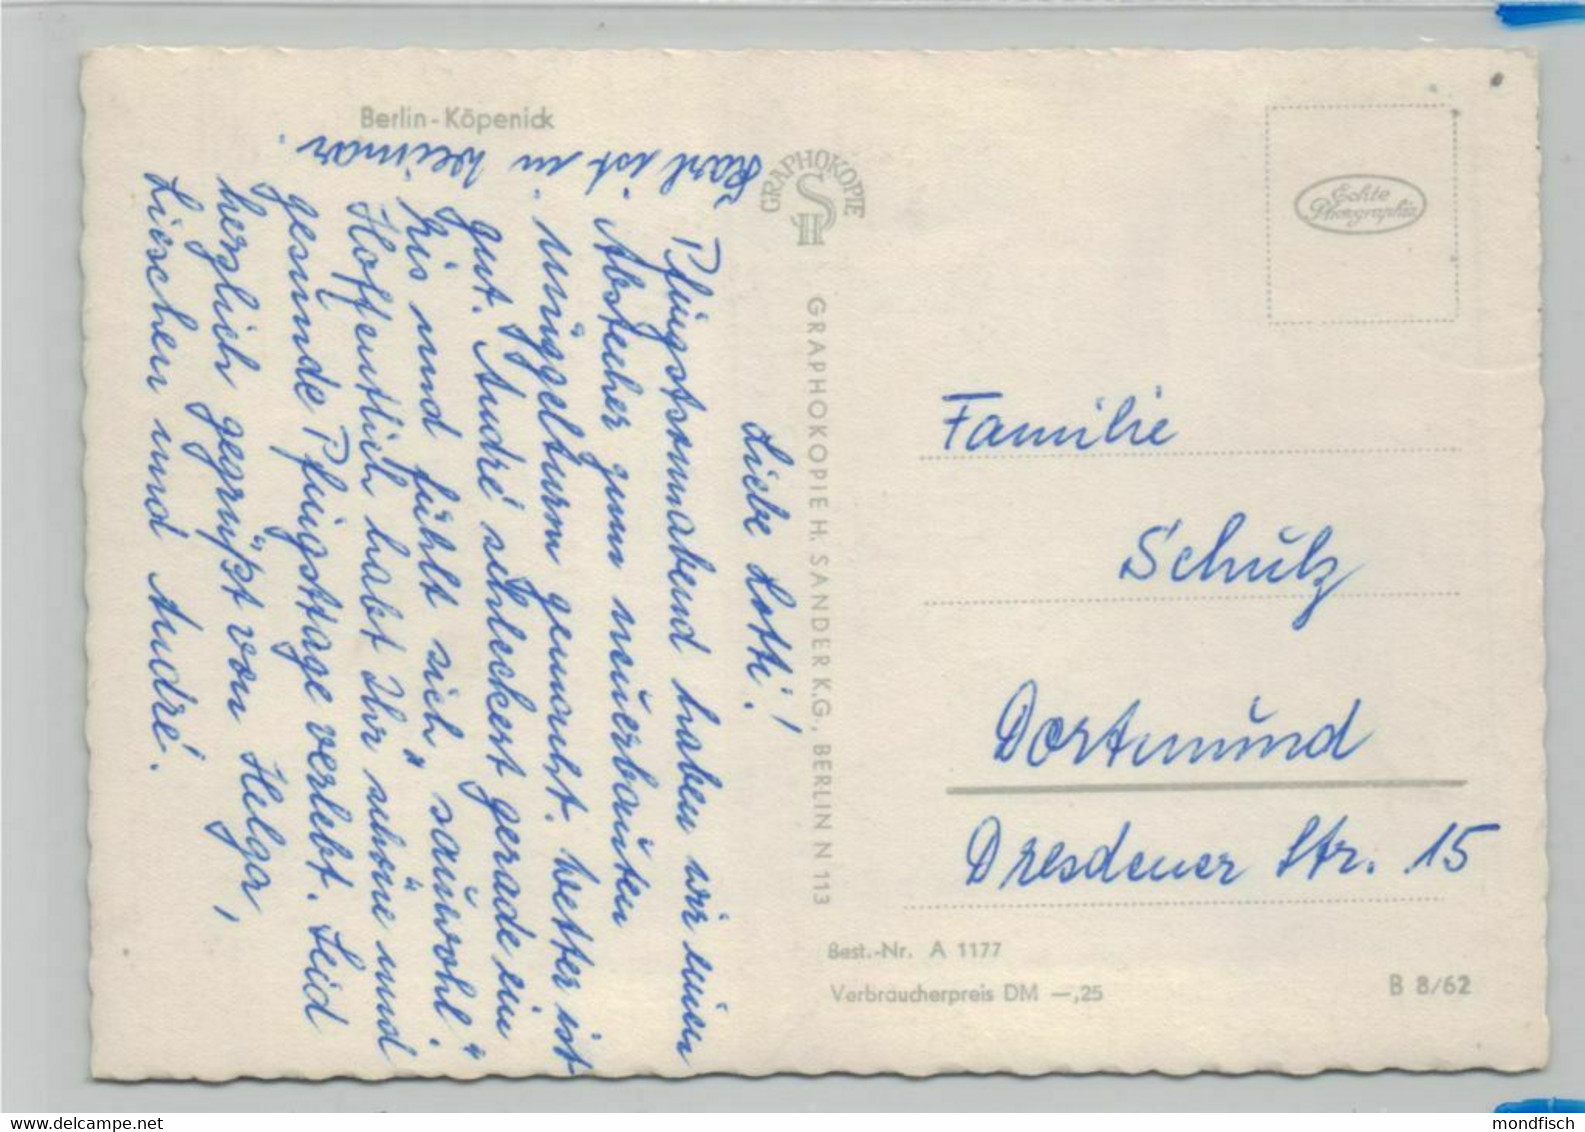 Berlin-Köpenick
Karl ist in Weimar.
Liebe Lotti!
Pfingstsonnabend haben wir einen
Abstecher zum neuerbauten
Müggelturm gemacht. Wetter ist
gut. André schleckert gerade ein
Eis und fühlt sich "sauwohl".
Hoffentlich habt Ihr schöne und
gesunde Pfingsttage verlebt. Seid
herzlich gegrüßt von Helga,
Lieschen und André.
GRAPHOKOPIE
HS
GRAPHOKOPIE H. SANDER K.G., BERLIN N 113
Echte
Photographie
Familie
Schulz
Dortmund
Dresdener Str. 15
Best.-Nr. A 1177
Verbraucherpreis DM —,25
B 8/62
delcampe.net
mondfisch